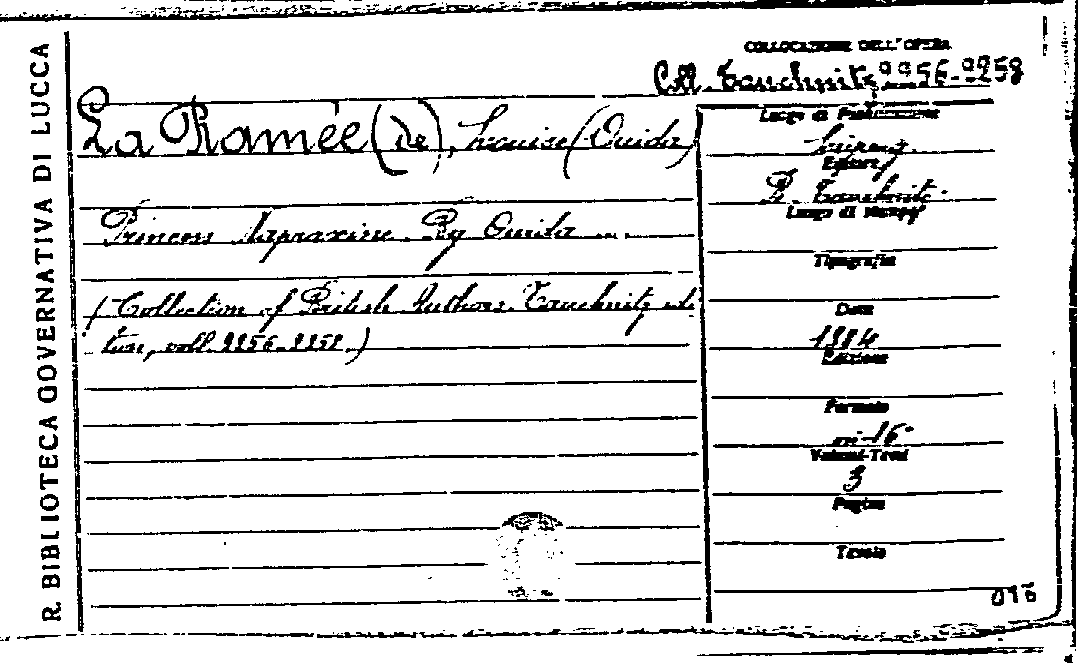 R. BIBLIOTECA GOVERNATIVA DI LUCCA
COLLOCAZIONE DELL'OPERA
Coll. Tauchnitz 2256-2258
La Ramée (de), Louise (Ouida)
Princess Napraxine. By Ouida ...
(Collection of British Authors. Tauchnitz edi
tion, voll. 2256-2258.)
Luogo di Pubblicazione
Leipzig.
Editore
B. Tauchnitz.
Luogo di Stampa
Tipografia
Data
1884
Edizione
Formato
in-16°
Volumi-Tomi
3
Pagine
Tavole